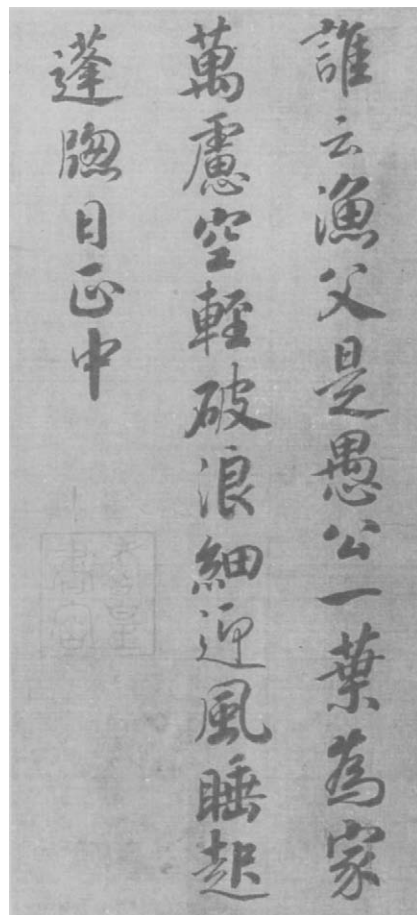 誰云漁父是愚公一葉為家
萬慮空輕破浪細迎風睡起
蓬牕日正中